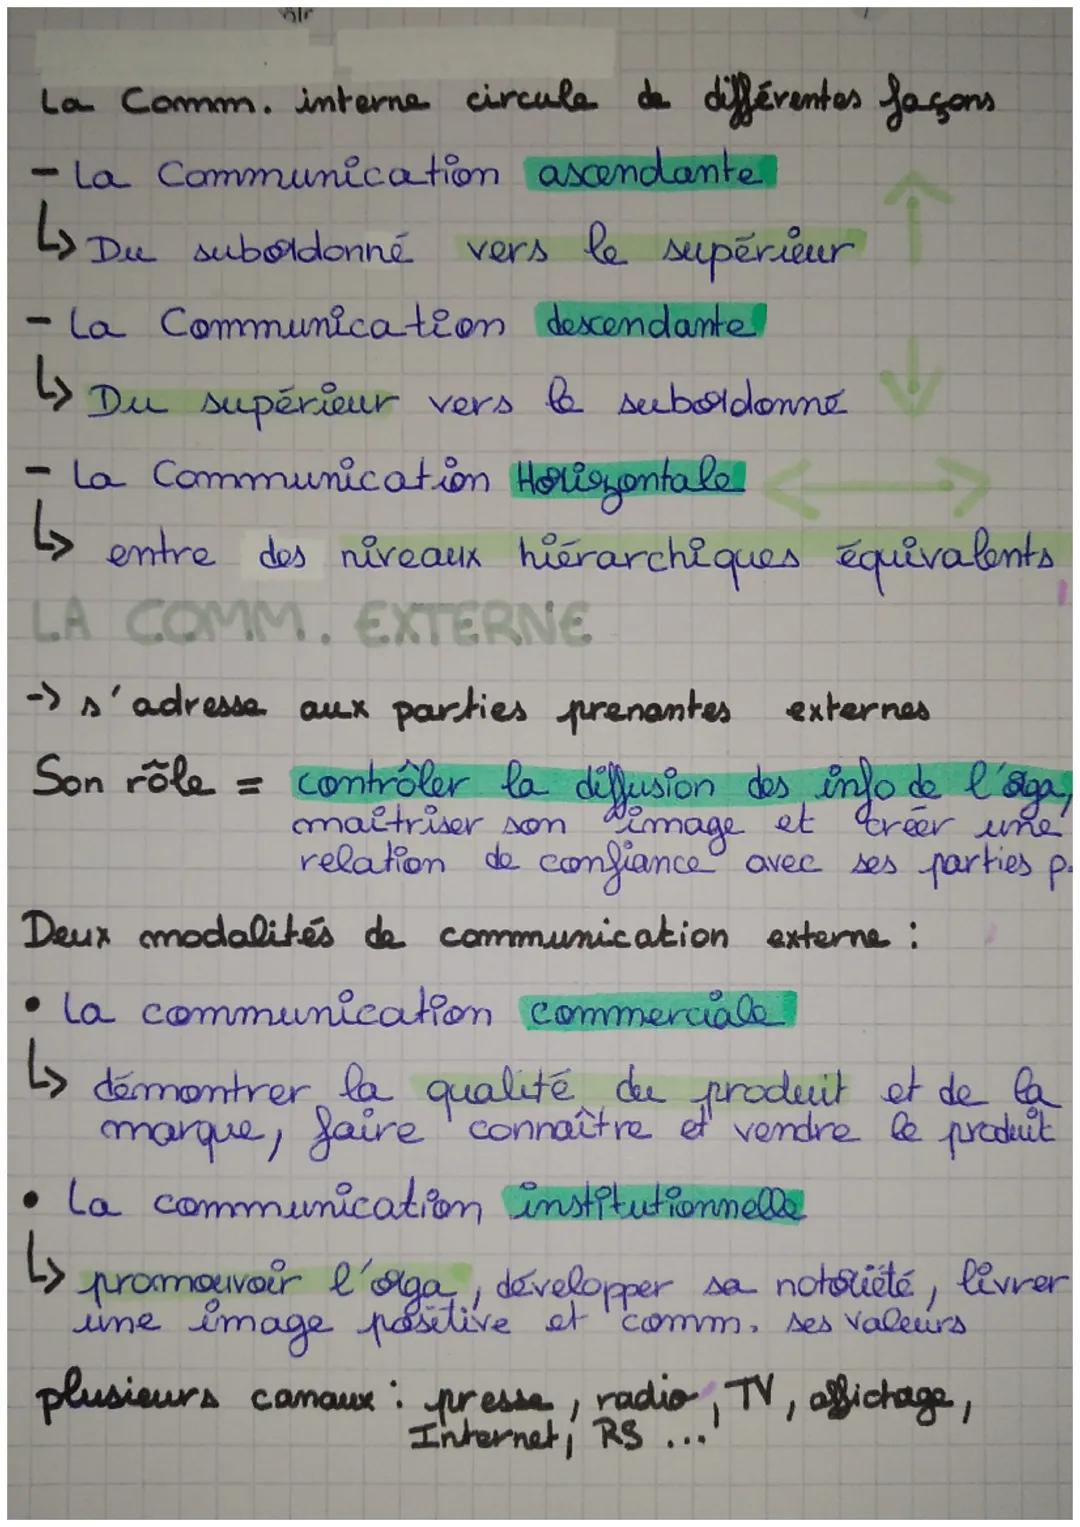 La Comm. interne circule de différentes façons
- La Communication ascendante
↳ Du subordonné vers le supérieur
- La Communication descendante
↳ Du supérieur vers le subordonné
- La Communication Horizontale
↳ entre des niveaux hiérarchiques équivalents
LA COMM. EXTERNE
-> s'adresse aux parties prenantes externes
Son rôle = contrôler la diffusion des info de l'orga,
maîtriser son image et créer une
relation de confiance avec ses parties p.
Deux modalités de communication externe :
• La communication commerciale
↳ démontrer la qualité du produit et de la
marque, faire connaître et vendre le produit
• La communication institutionnelle
↳ promouvoir l'orga, développer sa notoriété, livrer
une image positive et comm. ses valeurs
plusieurs canaux : presse, radio, TV, affichage,
Internet, RS ...